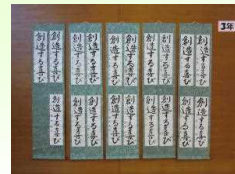 3年
創造する喜び
創造する喜び
創造する喜び
創造する喜び
創造する喜び
創造する喜び
創造する喜び
創造する喜び
創造する喜び
創造する喜び
創造する喜び
創造する喜び
創造する喜び
創造する喜び
創造する喜び
創造する喜び
創造する喜び
創造する喜び
創造する喜び